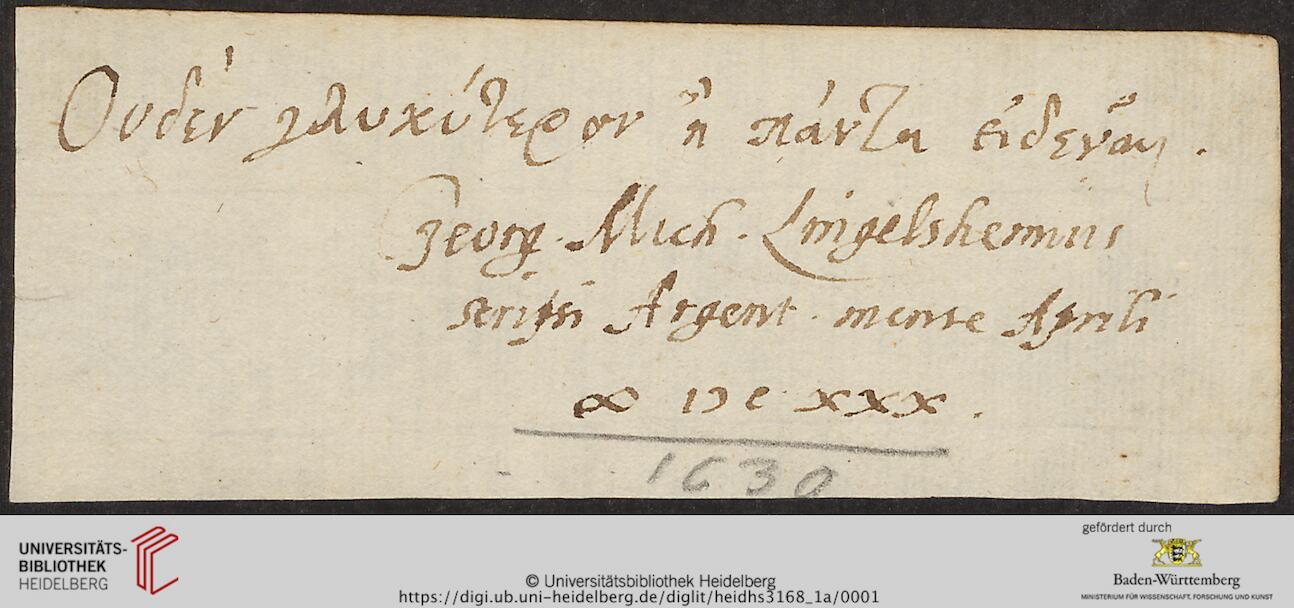 Ουδὲν γλυκύτερον ἢ πάντα εἰδέναι.
Georg. Mich. Lingelshemius
scripsi Argent. mense Aprili
ↀ IↃC XXX.
1630
UNIVERSITÄTS-
BIBLIOTHEK
HEIDELBERG
© Universitätsbibliothek Heidelberg
https://digi.ub.uni-heidelberg.de/diglit/heidhs3168_1a/0001
gefördert durch
Baden-Württemberg
MINISTERIUM FÜR WISSENSCHAFT, FORSCHUNG UND KUNST